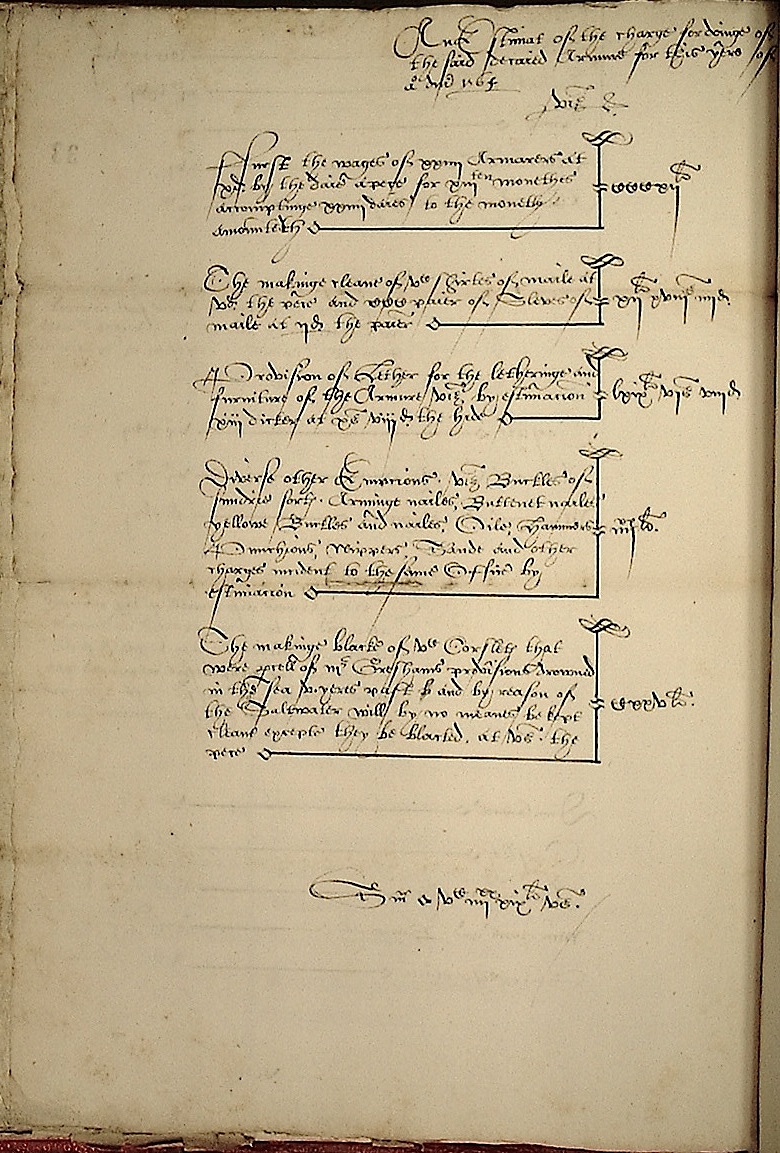 An Estimat of the charge for doinge of
the said decaied Armure for this yere of
Ao dni 156
viz
First the wages of xxiiii Armorers at
xd by the daie apece for xiii ten monethes
accomptinge xxiiii daies to the moneth
amounteth cccxii li
The makinge cleane of vc Shirtes of maile at
vd the pece and ccc paier of Sleves of
maile at iid the paier xii li xviiis iiiid
Provision of Lether for the letheringe and
furniture of the Armure viz by estimacion
xiii dicker at xs viiid the hide lxix li vis viiid
Diverse other Empcions viz Buckles of
sundrie sort Arminge nailes, Buttenet nailes
yellowe Buckles and nailes, Oile, Hammers
Punchions, Wippers Sande and other
charges incident to the same Office by
estimacion iiiixx li
The makinge blacke of vc Corslets that
were pcell of mr Greshams provisions drownd
in the Sea v yeres past and by reason of
the Saltwater will by no meanes be kept
cleane excepte they be blacked, at vs the
pece cxxv li
Sma vc iiiixx xix li vs